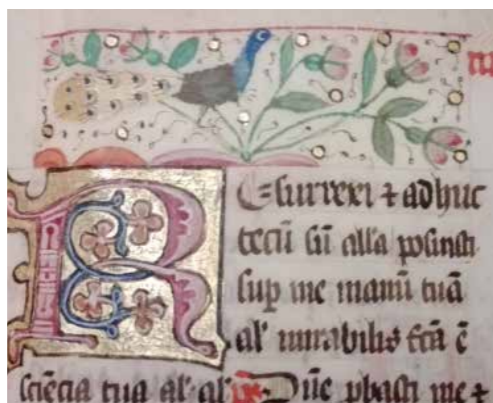 REsurrexi ⁊ adhuc
tecū sū alla posuisti
sup̱ me manū tuā
al' mirabilis fcā ē
sciēcia tua al' al' Dn̄e ꝓbasti me ⁊